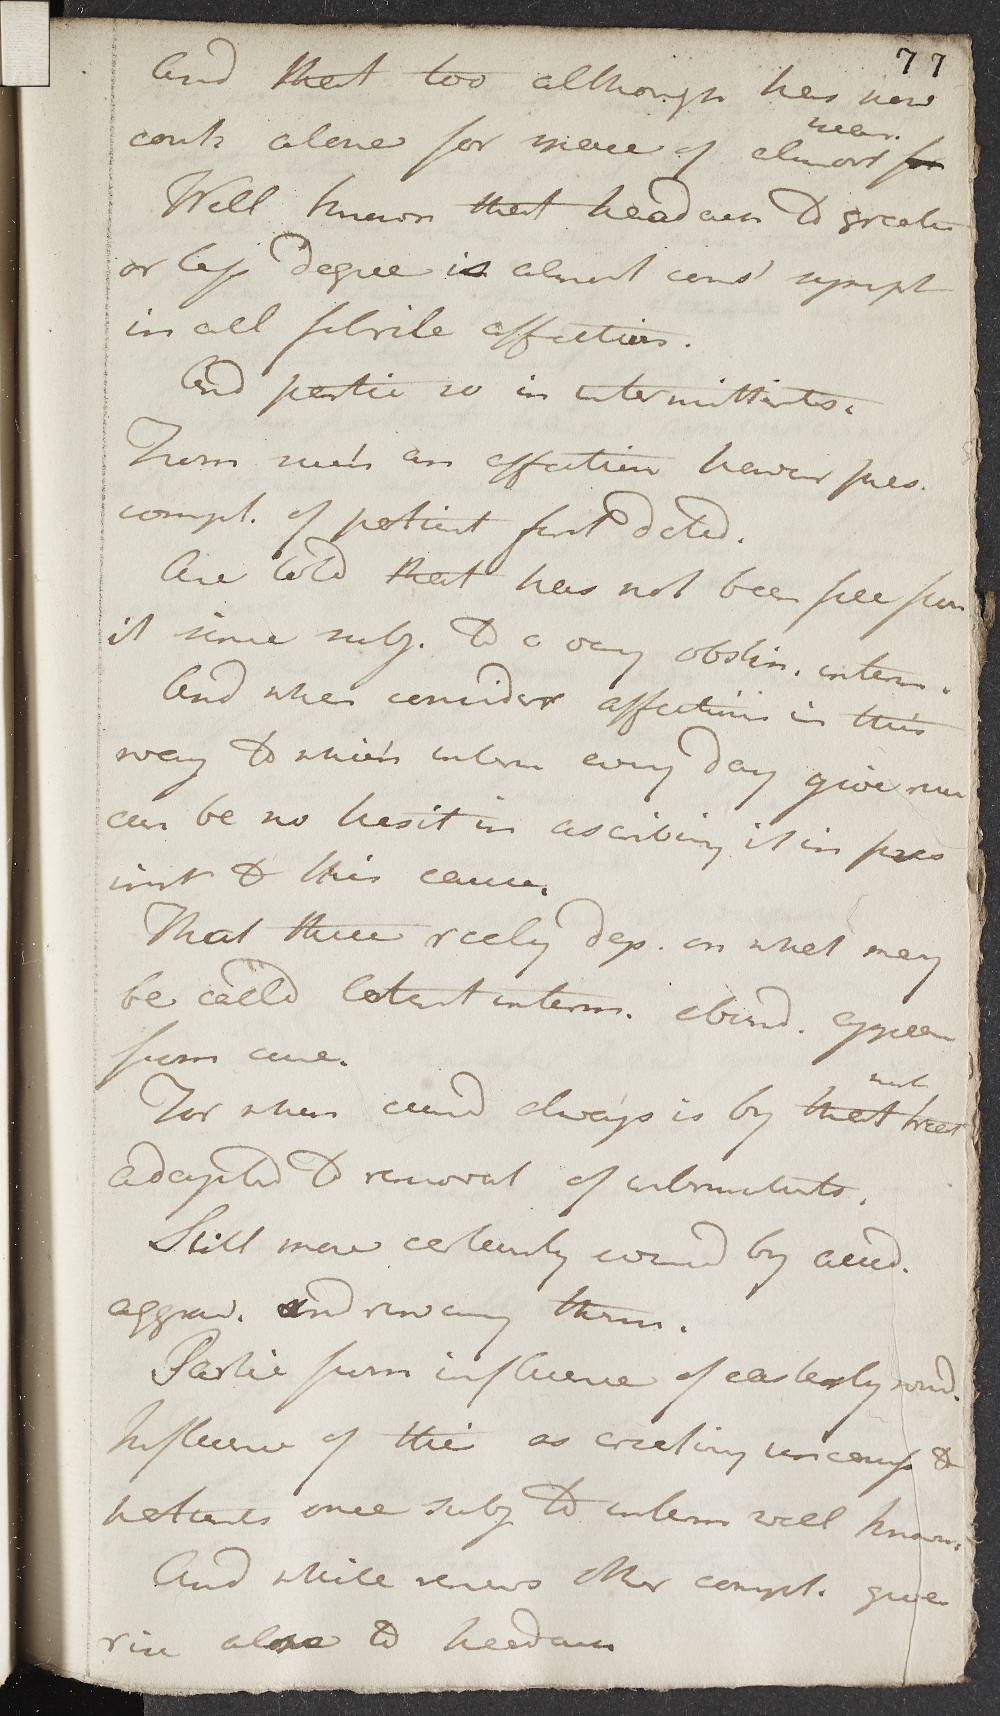 77
And that too although has now
cont. alone for space of almost
near.
Well known that headach to greater
or less degree is almost const sympt
in all febrile affections.
And partic so in intermittents.
From such an affection however pres.
compl. of patient first dated.
Are told that has not been free from
it since subj. to a very obstin. interm.
And when consider affections in this
way to which interm every day give rise
can be no hesit in ascribing it in pres
inst to this cause.
That these really dep. on what may
be called latent interm. abund. appear
from cure.
For when cured always is by that treat
adapted to removal of intermittents.
Still more certainly by
aggrav. and renewing them.
Partic from influence of easterly wind.
Influence of this as creating uneasyss to
patients once subj to interm well known.
And while renews other compl. gives
rise also to headach